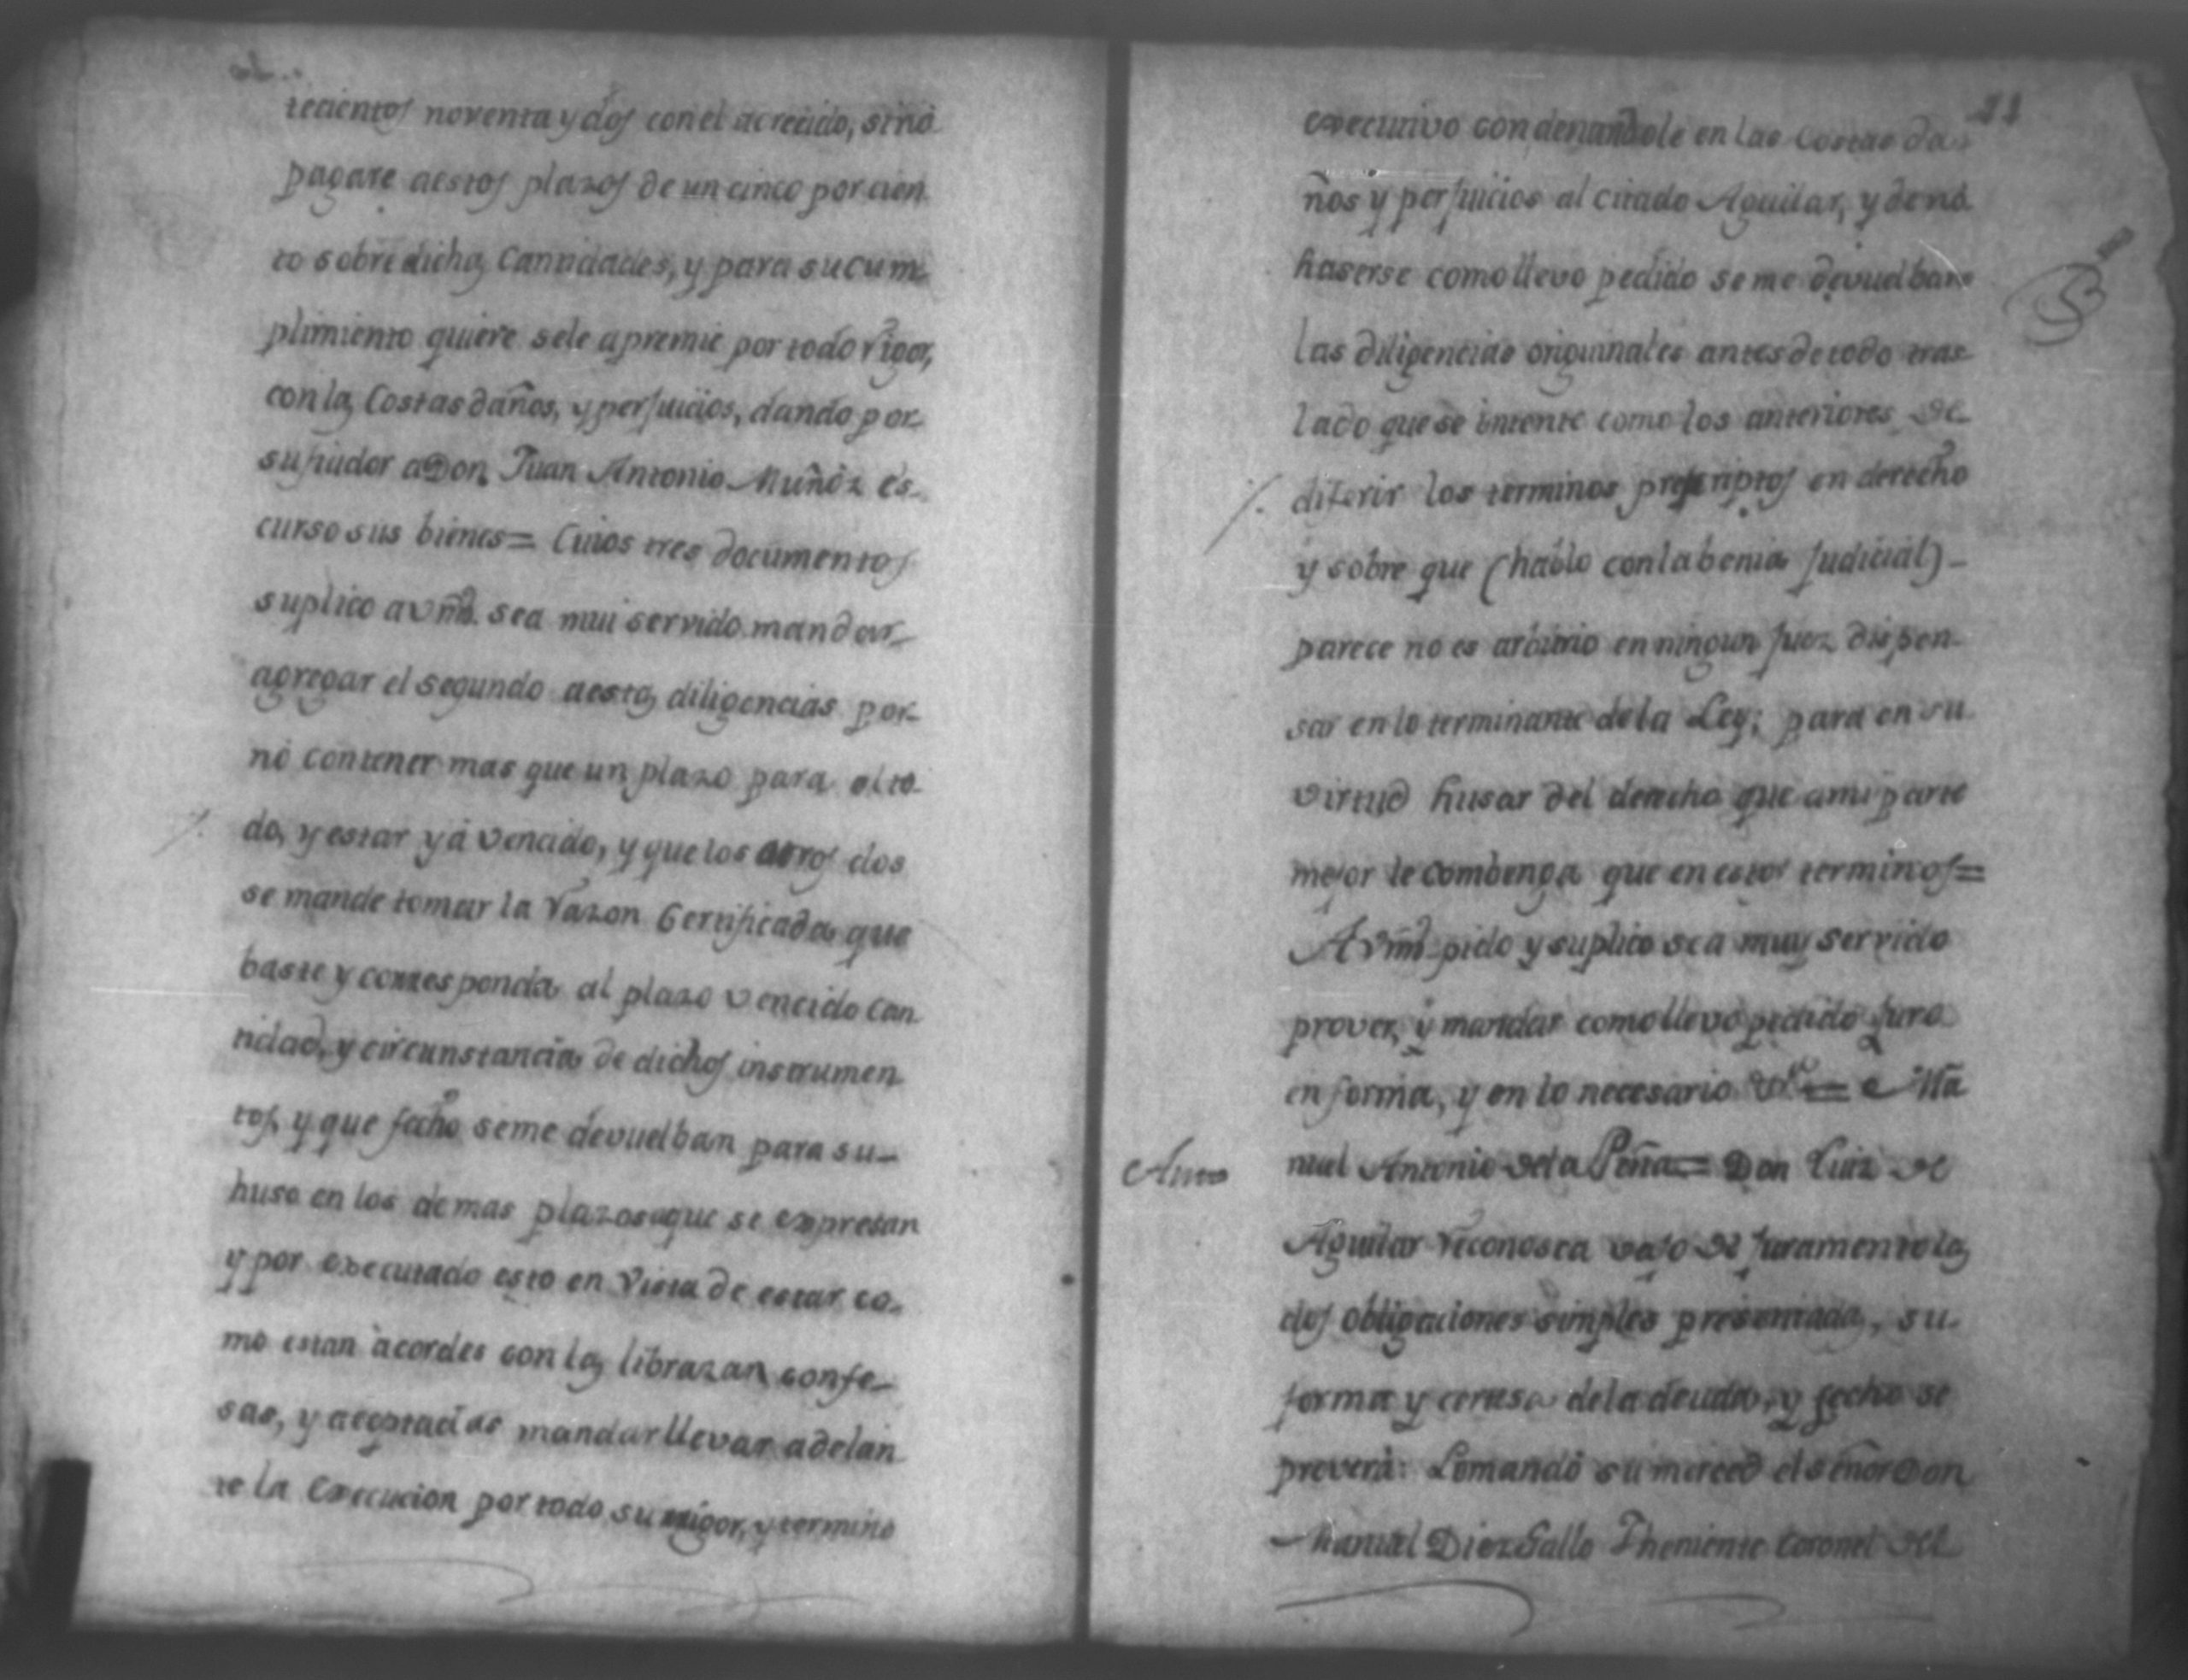 tecientos noventa y dos con el acrecido, sino
pagare aestos plazos de un cinco por cien
to sobre dichas Cantidades, y para sucum-
plimiento quiere sele apremie por todo rigor,
con las Costas daños, y perjuicios, dando por
su fiador a Don Juan Antonio Muñoz es-
curso sus bienes = Cuios tres documentos
suplico a vmd. sea mui servido mandar
agregar el segundo aestas diligencias por
no contener mas que un plazo para el to
do, y estar yá vencido, y que los otros dos
se mande tomar la razon Certificada que
baste y corresponda al plazo vencido can
tidad, y circunstancia de dichos instrumen
tos, y que fecho seme devuelban para su-
huso en los demas plazos que se expresan
y por executado esto en vista de estar co-
mo estan àcordes con las libranzas confe-
sas, y aceptadas mandar llevar adelan
te la Execucion por todo su rigor, y termino
21
executivo condenandole en las Costas da-
ños y perjuicios al citado Aguilar, y de no
haserse como llevo pedido se me devuelban
las diligencias originales antes de todo tras
lado que se intente como los anteriores de
diferir los terminos prescriptos en derecho
y sobre que (hablo con la benia Judicial) -
parece no es arbitrio en ningun Juez dispen-
sar en lo terminante de la Ley; para en su
virtud husar del derecho que a mi parte
mejor le combenga que en estos terminos =
A vmd pido y suplico sea muy servido
prover, y mandar como llevo pedido Juro
en forma, y en lo necesario &a = Ma
nuel Antonio de la Peña = Don Luiz de
Auto
Aguilar reconosca vajo de juramento las
dos obligaciones simples presentadas, su
forma y certesa de la deuda, y fecho se
proverà: Lo mandó su merced el señor Don
Manuel Diez Gallo Theniente Coronel del